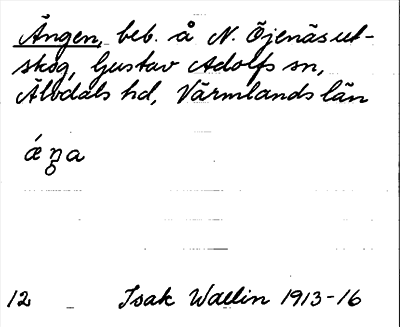 Ängen, beb. å N. Öjenäsut-
skog, Gustav Adolfs sn,
Älvdals hd, Värmlands län
ǽŋ̥a
12 Isak Wallin 1913-16